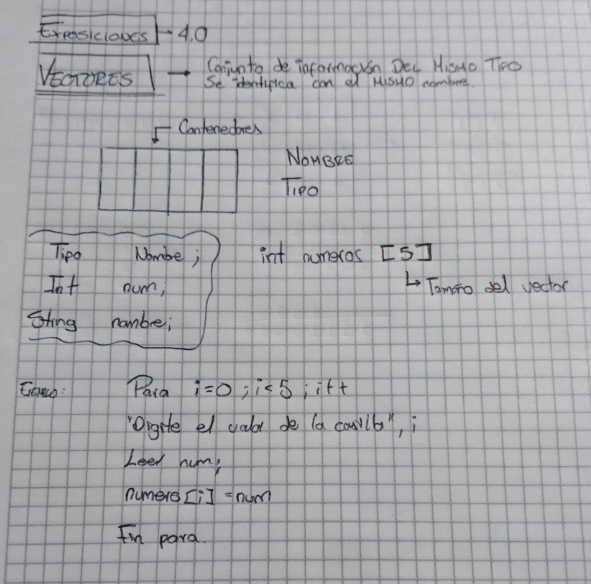 Exposiciones - 4.0
VECTORES → Conjunto de información DEL MISMO TIPO
Se identifica con el MISMO nombre.
Contenedores
NOMBRE
TIPO
Tipo Nombe;
Int num;
Sting nombre;
int numeros [5]
↳ Tamaño del vector
Ejemplo: Para i=0; i<5; i++
"Digite el valor de la casilla", i
Leer num;
numero[i] = num
Fin para.